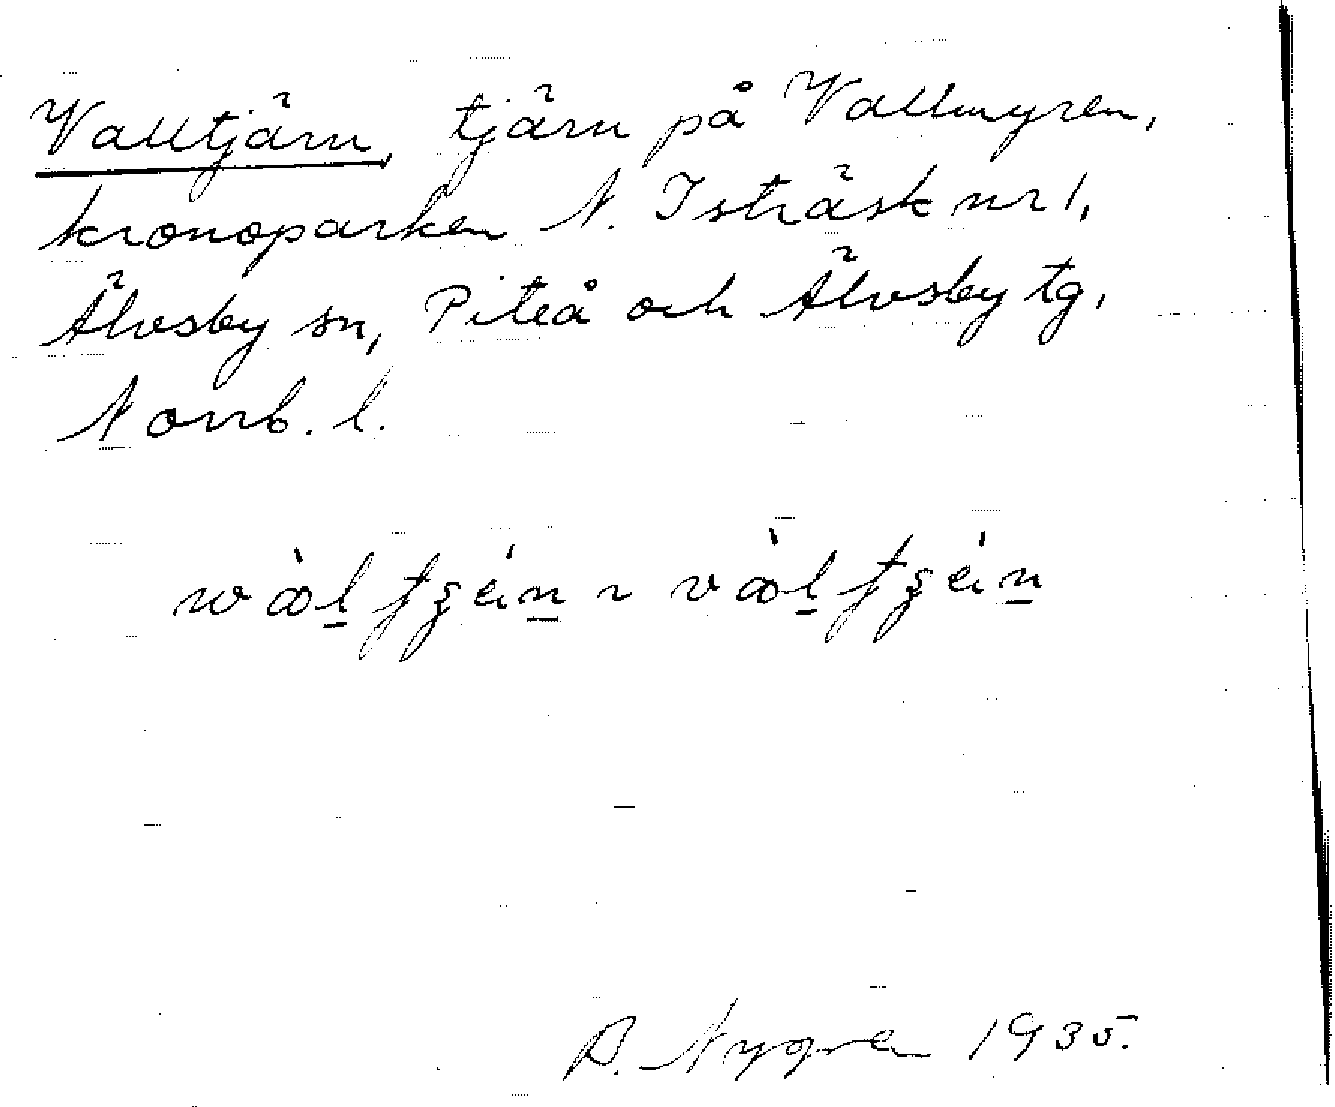 Valltjärn, tjärn på Vallmyren,
kronoparken N. Isträsk nr 1,
Älvsby sn, Piteå och Älvsby tg,
Norrb. l.
Nygren 1935.